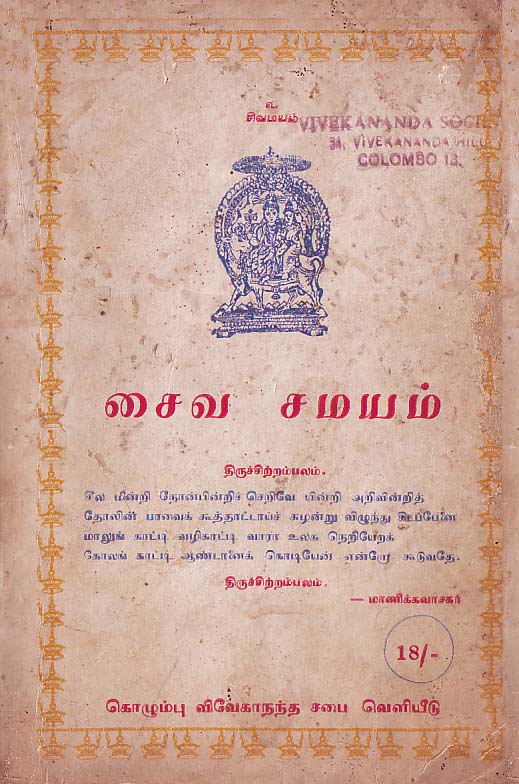 உ
சிவமயம்
VIVEKANANDA SOCI
34, VIVEKANANDA HILL
COLOMBO 13.
சைவ சமயம்
திருச்சிற்றம்பலம்.
சீல மின்றி நோன்பின்றிச் செறிவே யின்றி அறிவின்றித்
தோலின் பாவைக் கூத்தாட்டாய்ச் சுழன்று விழுந்து கிடப்பேனை
மாலுங் காட்டி வழிகாட்டி வாரா உலக நெறியேறக்
கோலங் காட்டி ஆண்டானைக் கொடியேன் என்றோ கூடுவதே.
திருச்சிற்றம்பலம்.
— மாணிக்கவாசகர்
18/-
கொழும்பு விவேகாநந்த சபை வெளியீடு